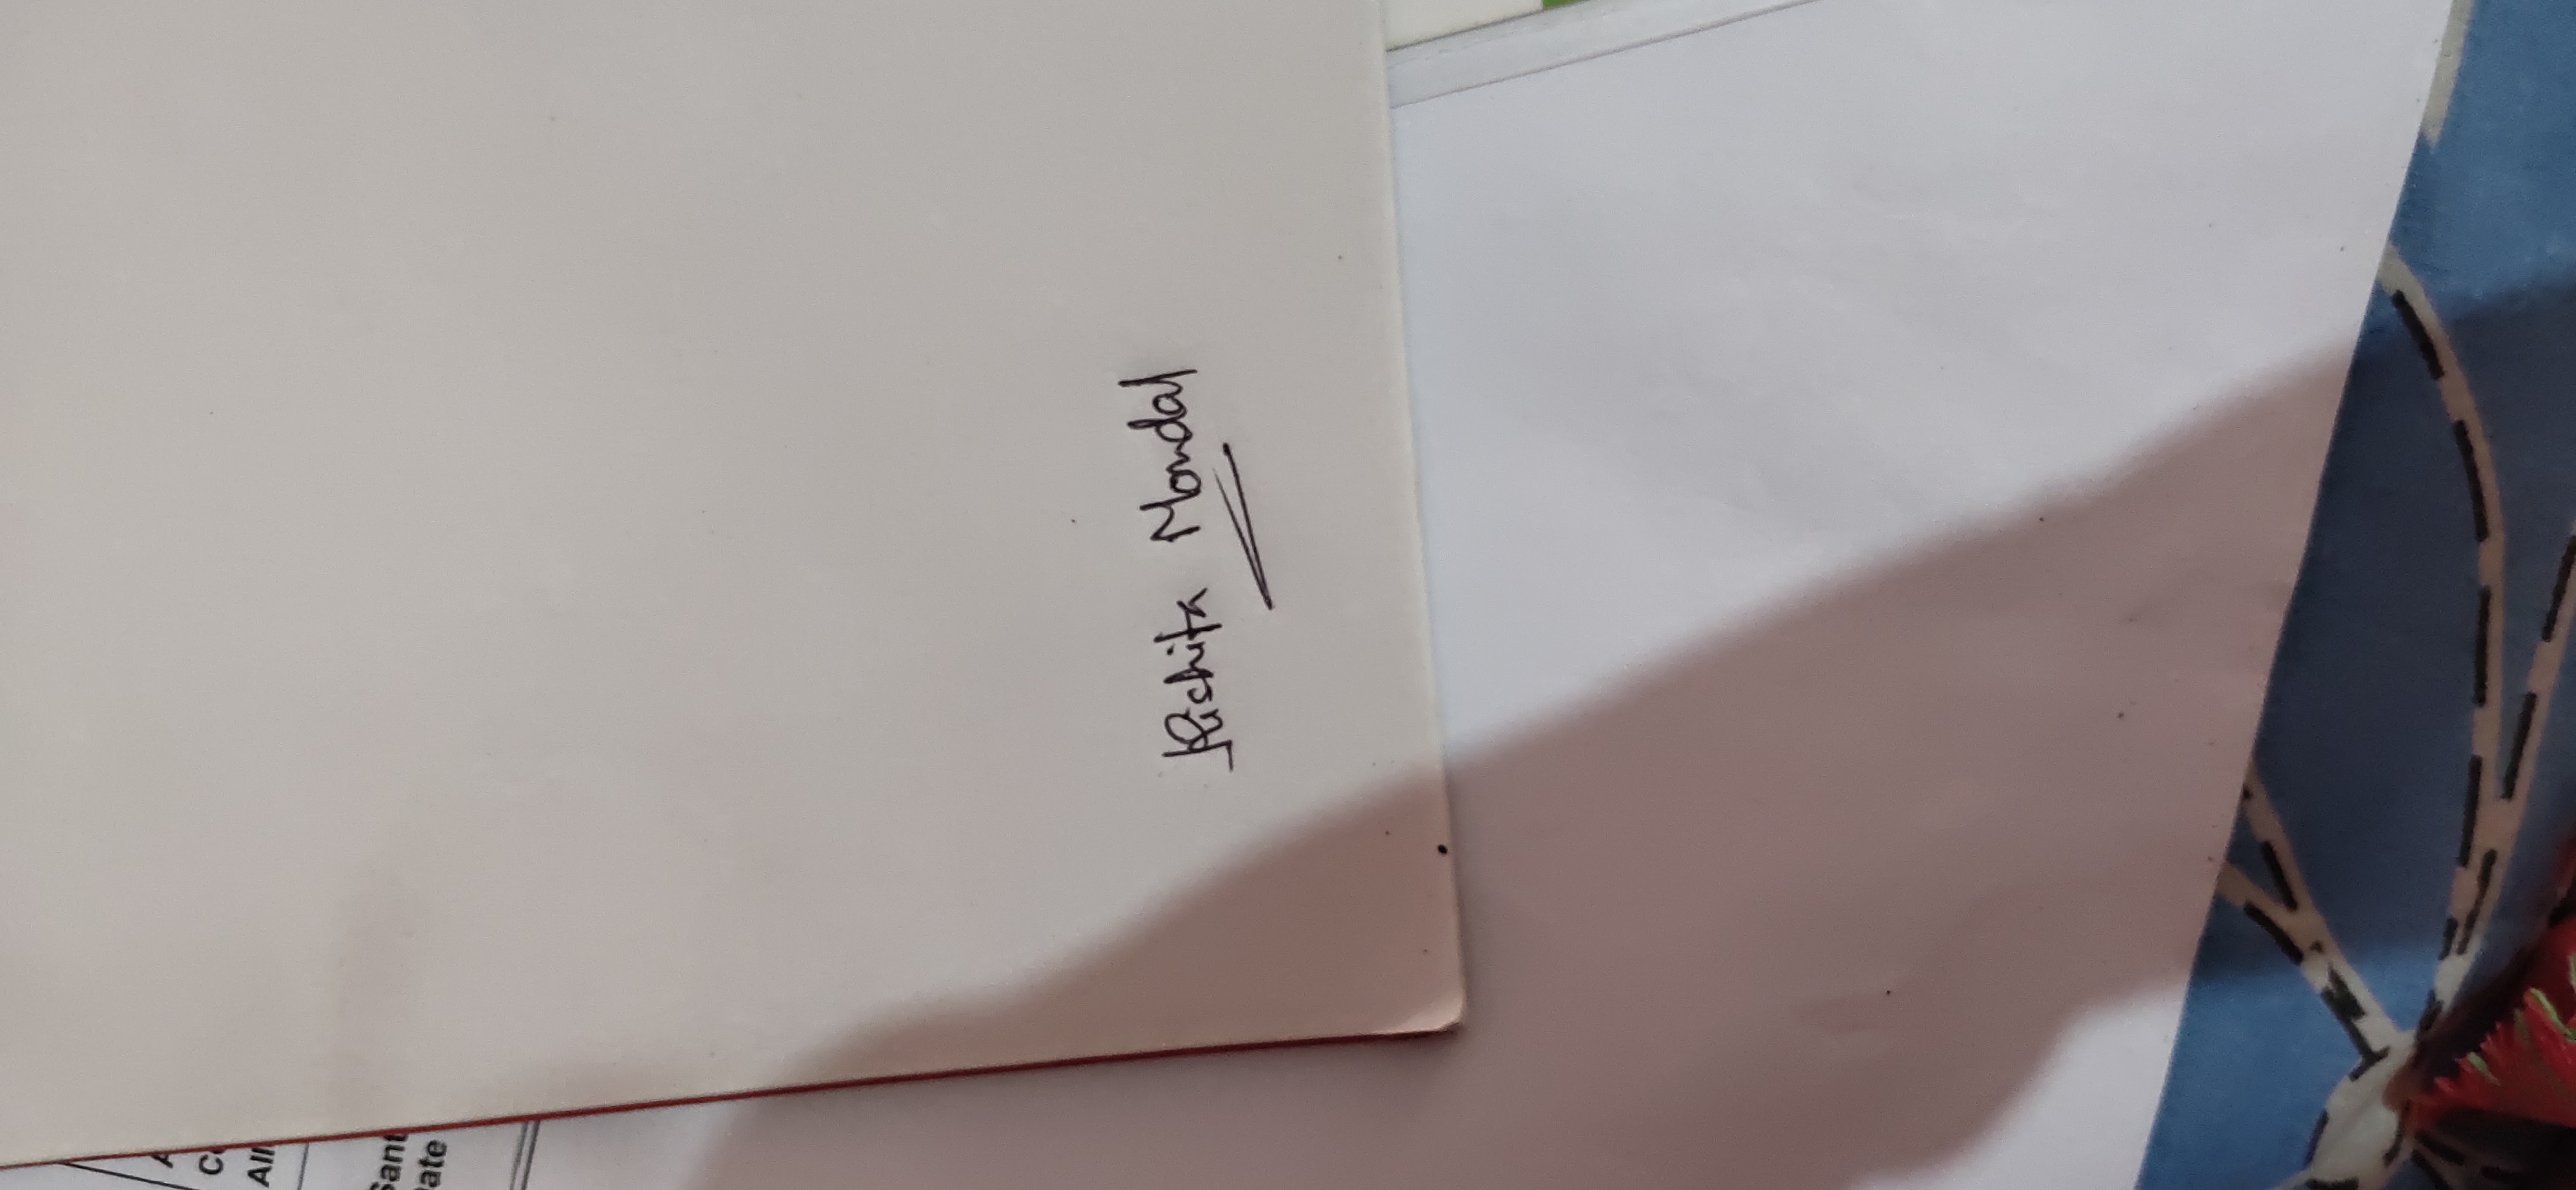 All
Sant
ate
Rishita Mondal